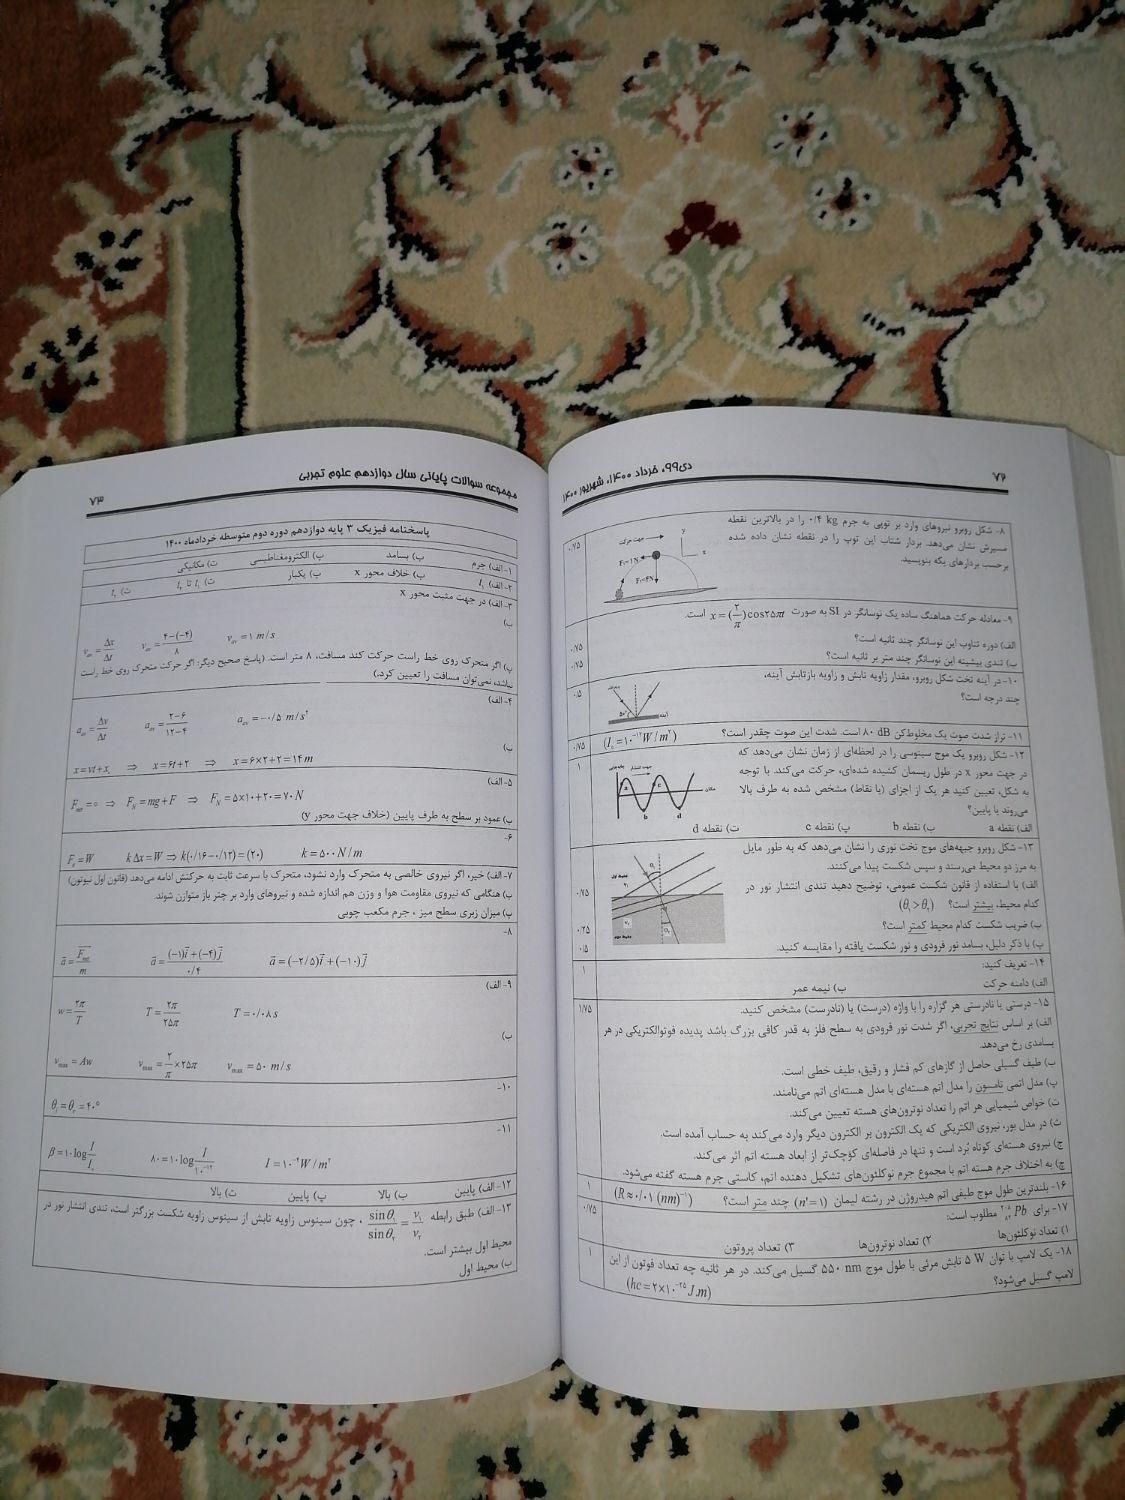 ۷۲
دی۹۹، خرداد ۱۴۰۰، شهریور ۱۴۰۰
۸- شکل روبرو نیروهای وارد بر توپی به جرم ۰/۴ kg را در بالاترین نقطه
مسیرش نشان می‌دهد. بردار شتاب این توپ را در نقطه نشان داده شده
برحسب بردارهای یکه بنویسید.
۰/۷۵
جهت حرکت
y
x
۹- معادله حرکت هماهنگ ساده یک نوسانگر در SI به صورت x = (۲/π) cos۲۵πt است.
الف) دوره تناوب این نوسانگر چند ثانیه است؟
۰/۷۵
ب) تندی بیشینه این نوسانگر چند متر بر ثانیه است؟
۰/۷۵
۱۰- در آینه تخت شکل روبرو، مقدار زاویه تابش و زاویه بازتابش آینه،
چند درجه است؟
۰/۵
۵۰°
آینه
۱۱- تراز شدت صوت یک مخلوط‌کن ۸۰ dB است. شدت این صوت چقدر است؟ (I₀ = ۱۰⁻¹²W/m²)
۰/۷۵
۱۲- شکل روبرو یک موج سینوسی را در لحظه‌ای از زمان نشان می‌دهد که
در جهت محور x در طول ریسمان کشیده شده‌ای، حرکت می‌کند. با توجه
به شکل، تعیین کنید هر یک از اجزای (یا نقاط) مشخص شده به طرف بالا
می‌روند یا پایین؟
۱
جهت انتشار
مکان
a
b
c
d
الف) نقطه a ب) نقطه b پ) نقطه c ت) نقطه d
۱۳- شکل روبرو جبهه‌های موج تخت نوری را نشان می‌دهد که به طور مایل
به مرز دو محیط می‌رسند و سپس شکست پیدا می‌کنند.
الف) با استفاده از قانون شکست عمومی، توضیح دهید تندی انتشار نور در
کدام محیط، بیشتر است؟ (θ₁ > θ₂)
۰/۷۵
ب) ضریب شکست کدام محیط کمتر است؟
۰/۲۵
پ) با ذکر دلیل، بسامد نور فرودی و نور شکست یافته را مقایسه کنید.
۰/۵
۱۴- تعریف کنید:
الف) دامنه حرکت ب) نیمه عمر
۱
۱۵- درستی یا نادرستی هر گزاره را با واژه (درست) یا (نادرست) مشخص کنید.
۱/۷۵
الف) بر اساس نتایج تجربی، اگر شدت نور فرودی به سطح فلز به قدر کافی بزرگ باشد پدیده فوتوالکتریکی در هر
بسامدی رخ می‌دهد.
ب) طیف گسیلی حاصل از گازهای کم فشار و رقیق، طیف خطی است.
پ) مدل اتمی تامسون را مدل اتم هسته‌ای با مدل هسته‌ای اتم می‌نامند.
ت) خواص شیمیایی هر اتم را تعداد نوترون‌های هسته تعیین می‌کند.
ث) در مدل بور، نیروی الکتریکی که یک الکترون بر الکترون دیگر وارد می‌کند به حساب آمده است.
ج) نیروی هسته‌ای کوتاه بُرد است و تنها در فاصله‌ای کوچک‌تر از ابعاد هسته اتم اثر می‌کند.
چ) به اختلاف جرم هسته اتم با مجموع جرم نوکلئون‌های تشکیل دهنده اتم، کاستی جرم هسته گفته می‌شود.
۱۶- بلندترین طول موج طیفی اتم هیدروژن در رشته لیمان (n′=۱) چند متر است؟ (R≈۰/۰۱ (nm)⁻¹)
۱
۱۷- برای ²⁰⁸₈₂Pb مطلوب است:
۰/۷۵
۱) تعداد نوکلئون‌ها ۲) تعداد نوترون‌ها ۳) تعداد پروتون
۱۸- یک لامپ با توان ۵ W تابش مرئی با طول موج ۵۵۰ nm گسیل می‌کند. در هر ثانیه چه تعداد فوتون از این
لامپ گسیل می‌شود؟ (hc = ۲×۱۰⁻²⁵ J.m)
۱
مجموعه سوالات پایانی سال دوازدهم علوم تجربی
۷۳
پاسخنامه فیزیک ۳ پایه دوازدهم دوره دوم متوسطه خردادماه ۱۴۰۰
۱- الف) جرم ب) بسامد پ) الکترومغناطیسی ت) مکانیکی
۲- الف) t₁ ب) خلاف محور x پ) یکبار ت) t₁ تا t₂
۳- الف) در جهت مثبت محور x
ب)
vₐᵥ = Δx/Δt vₐᵥ = (۴−(−۴))/۸ vₐᵥ = ۱ m/s
پ) اگر متحرک روی خط راست حرکت کند مسافت، ۸ متر است. (پاسخ صحیح دیگر: اگر حرکت متحرک روی خط راست
نباشد، نمی‌توان مسافت را تعیین کرد.)
۴- الف)
aₐᵥ = Δv/Δt aₐᵥ = (۲−۶)/(۱۲−۴) aₐᵥ = −۰/۵ m/s²
ب)
x = vt + x₀ ⇒ x = ۶t+۲ ⇒ x = ۶×۲+۲ = ۱۴m
۵- الف)
Fnet = ۰ ⇒ F_N = mg+F ⇒ F_N = ۵×۱۰+۲۰ = ۷۰N
ب) عمود بر سطح به طرف پایین (خلاف جهت محور y)
۶-
Fₑ = W kΔx = W ⇒ k(۰/۱۶−۰/۱۲) = (۲۰) k = ۵۰۰ N/m
۷- الف) خیر، اگر نیروی خالصی به متحرک وارد نشود، متحرک با سرعت ثابت به حرکتش ادامه می‌دهد (قانون اول نیوتون)
ب) هنگامی که نیروی مقاومت هوا و وزن هم اندازه شده و نیروهای وارد بر چتر باز متوازن شوند.
پ) میزان زبری سطح میز ، جرم مکعب چوبی
۸-
a⃗ = F⃗net/m a⃗ = ((−۱)i⃗+(−۴)j⃗)/۰/۴ a⃗ = (−۲/۵)i⃗+(−۱۰)j⃗
۹- الف)
w = ۲π/T T = ۲π/۲۵π T = ۰/۰۸s
ب)
vmax = Aw vmax = ۲/π×۲۵π vmax = ۵۰ m/s
۱۰-
θᵢ = θᵣ = ۴۰°
۱۱-
β = ۱۰ log I/I₀ ۸۰ = ۱۰ log I/۱۰⁻¹² I = ۱۰⁻⁴W/m²
۱۲- الف) پایین ب) بالا پ) پایین ت) بالا
۱۳- الف) طبق رابطه sinθ₁/sinθ₂ = v₁/v₂ ، چون سینوس زاویه تابش از سینوس زاویه شکست بزرگتر است، تندی انتشار نور در
محیط اول بیشتر است.
ب) محیط اول